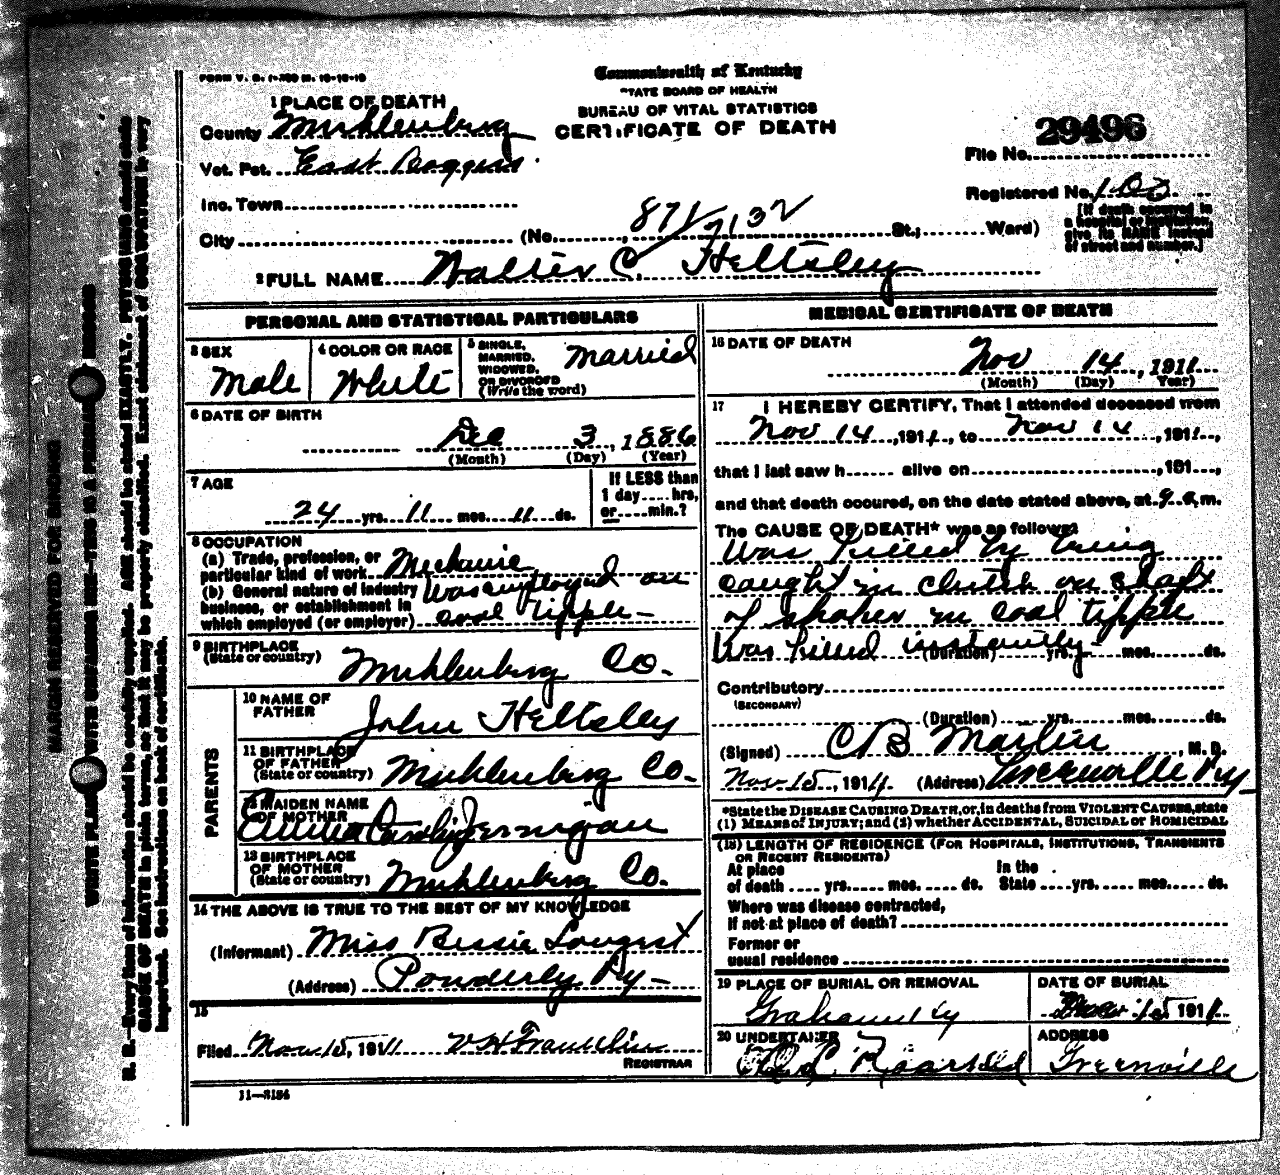 FORM V. S. 1-
Commonwealth of Kentucky
STATE BOARD OF HEALTH
BUREAU OF VITAL STATISTICS
CERTIFICATE OF DEATH
1 PLACE OF DEATH
County Muhlenberg
Vot. Pct. East
Inc. Town
City (No. 871/ 7132 St.; Ward)
29496
File No.
Registered No. 103
[If death occurred in a hospital or institution, give its NAME instead of street and number.]
2 FULL NAME Walter C. Heltsley
PERSONAL AND STATISTICAL PARTICULARS
3 SEX Male
4 COLOR OR RACE White
5 SINGLE, MARRIED, WIDOWED, OR DIVORCED (Write the word) Married
6 DATE OF BIRTH
Dec 3, 1886
(Month) (Day) (Year)
7 AGE
24 yrs. 11 mos. 11 ds.
If LESS than 1 day.... hrs, or.... min.?
8 OCCUPATION
(a) Trade, profession, or particular kind of work Mechanic
(b) General nature of industry business, or establishment in which employed (or employer) Was employed on coal tipple
9 BIRTHPLACE (State or country) Muhlenberg Co.
PARENTS
10 NAME OF FATHER John Heltsley
11 BIRTHPLACE OF FATHER (State or country) Muhlenberg Co.
12 MAIDEN NAME OF MOTHER Jernigan
13 BIRTHPLACE OF MOTHER (State or country) Muhlenberg Co.
14 THE ABOVE IS TRUE TO THE BEST OF MY KNOWLEDGE
(Informant) Miss Bessie Longest
(Address) Ponderly, Ky
15
Filed Nov 15, 1911 V H Franklin
REGISTRAR
11—3184
MEDICAL CERTIFICATE OF DEATH
16 DATE OF DEATH
Nov 14, 1911
(Month) (Day) (Year)
17 I HEREBY CERTIFY, That I attended deceased from
Nov 14, 1911, to Nov 14, 1911,
that I last saw h...... alive on, 191...,
and that death occured, on the date stated above, at 9 a.m.
The CAUSE OF DEATH* was as follows:
Was killed by being
caught in clutch on shaft
of shaker in coal tipple
Was killed instantly
(Duration) yrs. mos. ds.
Contributory
(SECONDARY)
(Duration) yrs. mos. ds.
(Signed) C B Martin, M. D.
Nov 15, 1911. (Address) Greenville Ky
*State the DISEASE CAUSING DEATH, or, in deaths from VIOLENT CAUSES, state
(1) MEANS of INJURY; and (2) whether ACCIDENTAL, SUICIDAL or HOMICIDAL
(18) LENGTH OF RESIDENCE (FOR HOSPITALS, INSTITUTIONS, TRANSIENTS
OR RECENT RESIDENTS)
At place of death .... yrs. mos. ds. In the State .... yrs. mos. ds.
Where was disease contracted,
If not at place of death?
Former or
usual residence
19 PLACE OF BURIAL OR REMOVAL Graham Ky
DATE OF BURIAL Nov 15 1911
20 UNDERTAKER
ADDRESS Greenville
MARGIN RESERVED FOR BINDING
WRITE PLAINLY WITH UNFADING INK—THIS IS A PERMANENT RECORD
N. B.—Every item of information should be carefully supplied. AGE should be stated EXACTLY. PHYSICIANS should state
CAUSE OF DEATH in plain terms, so that it may be properly classified. Exact statement of OCCUPATION is very
important. See instructions on back of certificate.